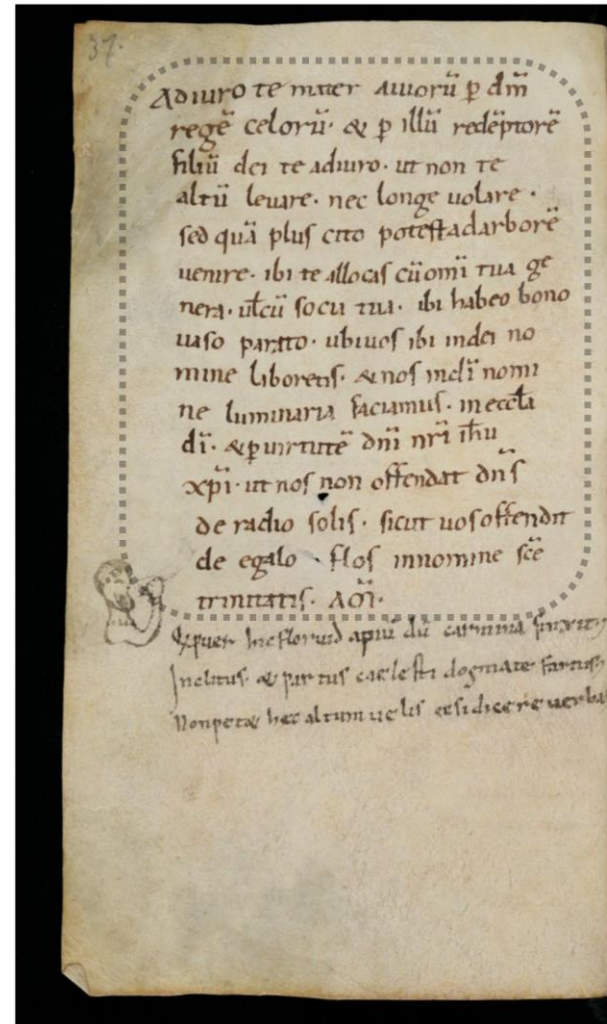 37.
Adiuro te mater auiorū p̄ dm̄
regē celorū· & p̄ illū redēptorē
filiū dei te adiuro· ut non te
altū leuare· nec longe uolare·
sed quā plus cito potest adarborē
uenire· ibi te allocas cū omī tua ge
nera· ul̄ cū socia tua· ibi habeo bono
uaso parato· ubi uos ibi indei no
mine liboretis· & nos indī nomi
ne luminaria faciamus· in eccl̄a
dī· & p̄ uirtutē dnī nrī ih̄u
xpī· ut nos non offendat dn̄s
de radio solis· sicut uos offendit
de egalo · flos innomine scē
trinitatis· AM̄·
puer hic apiū dū carmina
Inclitus· & partus caelesti dogmate
Non hec altum uelis dicere uerba